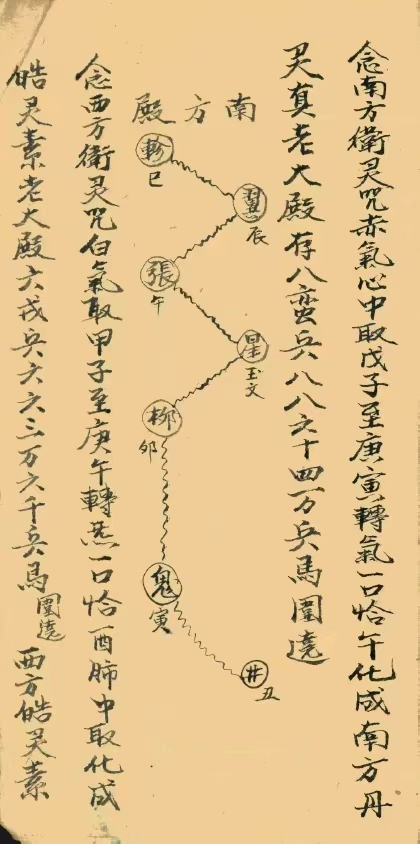 念南方衛灵咒赤氣心中取戊子至庚寅轉氣一口恰午化成南方丹
灵真老大殿存八蛮兵八八六十四万兵馬圍遶
南方殿
軫
巳
翼
辰
張
午
星
玉文
柳
卯
鬼
寅
井
丑
念西方衛灵咒白氣取甲子至庚午轉炁一口恰酉肺中取化成
皓灵素老大殿六戎兵六六三万六千兵馬圍遶 西方皓灵素